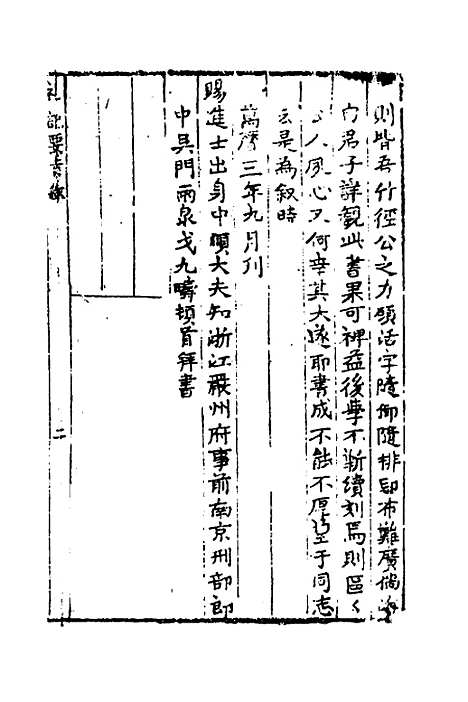 則皆吾竹徑公之力頭活字隨御隨排印布難廣倘海
內君子詳觀此書果可裨益後學不斬續刻焉則區〻
人夙心又何幸其大遂耶書成不能不厚望于同志
云是為叙時
萬曆三年九月刊
賜進士出身中順大夫知浙江嚴州府事前南京刑部郎
中吳門兩泉戈九疇頓首拜書
要旨
二